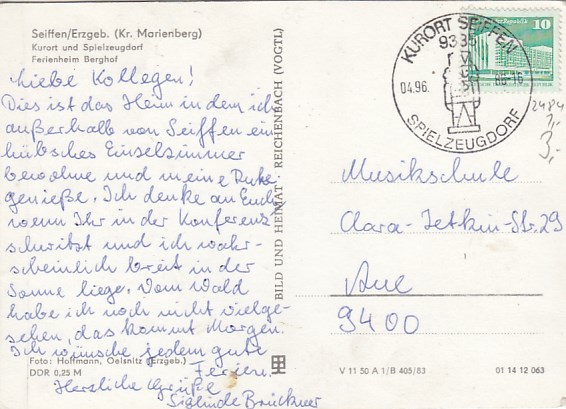 Seiffen/Erzgeb. (Kr. Marienberg)
Kurort und Spielzeugdorf
Ferienheim Berghof
Liebe Kollegen!
Dies ist das Heim in dem ich
außerhalb von Seiffen ein
hübsches Einzelzimmer
bewohne und meine Ruhe
genieße. Ich denke an Euch
wenn Ihr in der Konferenz
schwitzt und ich wahr-
scheinlich breit in der
Sonne liege. Vom Wald
habe ich noch nicht vielge-
sehen, das kommt Morgen.
Ich wünsche jedem gute
Ferien.
Herzliche Grüße
Siglinde Brückner
Foto: Hoffmann, Oelsnitz (Erzgeb.)
DDR 0,25 M
BILD UND HEIMAT · REICHENBACH (VOGTL)
KURORT SEIFFEN
9335
04.96.
86-16
SPIELZEUGDORF
10
2484
1,-
3,-
Musikschule
Clara-Zetkin-Str. 29
Aue
9400
V 11 50 A 1/B 405/83
01 14 12 063